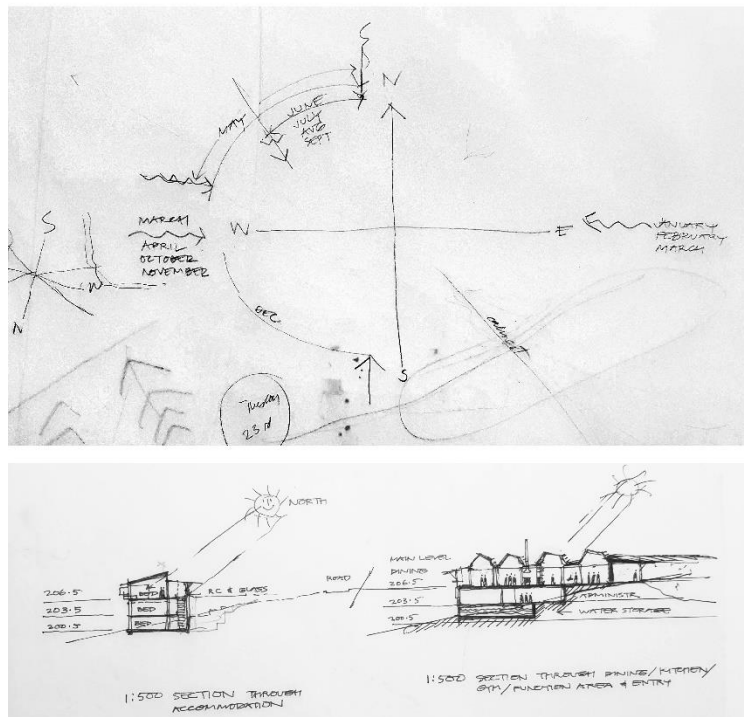 S
N
MAY
JUNE
JULY
AUG
SEPT
MARCH
W
E
APRIL
OCTOBER
NOVEMBER
JANUARY
FEBRUARY
MARCH
S
W
N
DEC
S
Tuesday
23rd
NORTH
206.5
203.5
200.5
BED
BED
BED
RC & GLASS
ROAD
1:500 SECTION THROUGH
ACCOMMODATION
MAIN LEVEL
DINING
206.5
203.5
200.5
ADMINISTR
WATER STORAGE
1:500 SECTION THROUGH DINING/KITCHEN/
GYM/FUNCTION AREA & ENTRY